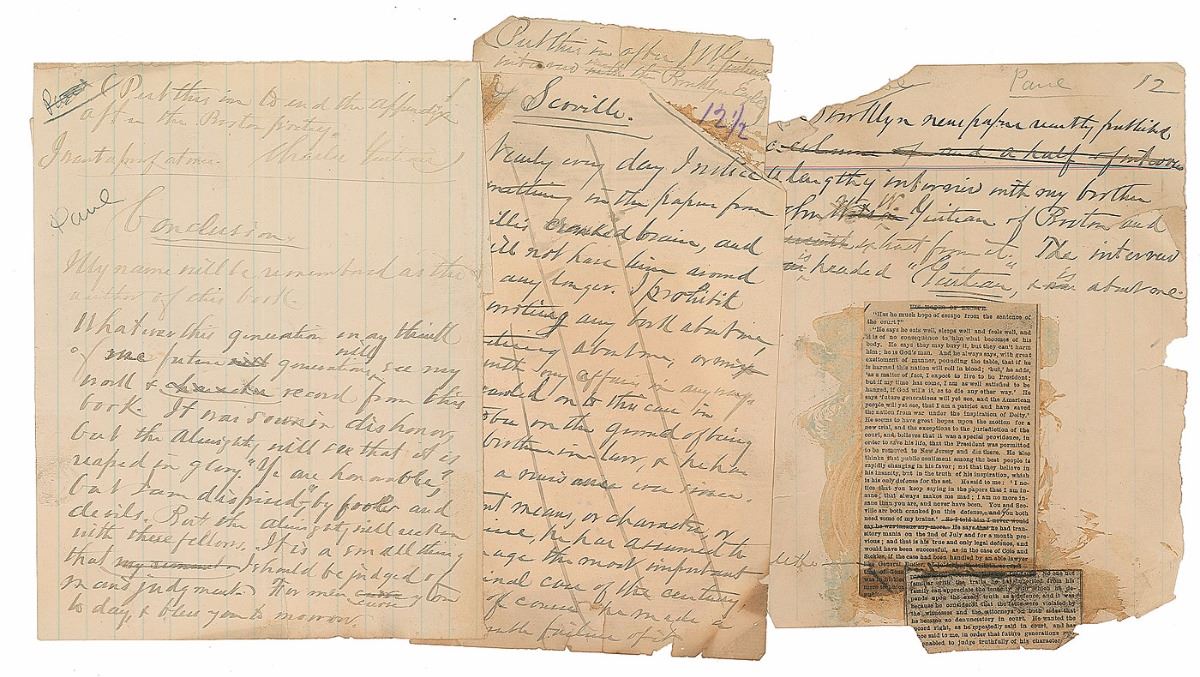 Put this in to end the appendix
after the Boston poetry.
I want a proof at once. Charles Guiteau
Conclusion.
My name will be remembered as the
author of this book.
Whatever this generation may think
of me future generations will see my
work & record from this
book. It was sown in dishonor,
but the Almighty will see that it is
reaped in glory. "Ye are honorable,
but I am despised," by fools and
devils. But the Almighty will reckon
with these fellows. It is a small thing
that I should be judged of
man's judgment. For men curse you
to day, & bless you to morrow.
Put this in after J. W. Guiteau
interview with the Brooklyn Eagle
Scoville.
12 1/2
Nearly every day I notice
something in the papers from
cranked brain, and
will not have him around
any longer. I prohibit
writing any book about me,
about me, or
with my affairs in any way.
on to this case in
on the ground of being
brother in law & he has
a nuisance ever since.
means, or character, or
he has assumed to
manage the most important
criminal case of the century
of course he made a
failure of it
12
Brooklyn newspaper recently published
a column and a half of interview
a lengthy interview with my brother
John W. Guiteau of Boston and
extract from it. The interview
is headed "Guiteau," & is about me.
"Has he much hope of escape from the sentence of
the court?"
"He says he eats well, sleeps well and feels well, and
it is of no consequence to him what becomes of his
body. He says they may bury it, but they can't harm
him; he is God's man. And he always says, with great
excitement of manner, pounding the table, that if he
is harmed this nation will roll in blood; 'but,' he adds,
'as a matter of fact, I expect to live to be President;
but if my time has come, I am as well satisfied to be
hanged, if God wills it, as to die any other way.' He
says 'future generations will yet see, and the American
people will yet see, that I am a patriot and have saved
the nation from war under the inspiration of Deity.'
He seems to have great hopes upon the motion for a
new trial, and the exceptions to the jurisdiction of the
court, and, believes that it was a special providence, in
order to save his life, that the President was permitted
to be removed to New Jersey and die there. He also
thinks that public sentiment among the best people is
rapidly changing in his favor; not that they believe in
his insanity, but in the truth of his inspiration, which
is his only defense for the act. He said to me: 'I no-
tice that you keep saying in the papers that I am in-
sane; that always makes me mad; I am no more in-
sane than you are, and never have been. You and Sco-
ville are both cranked on this defense, and you both
need some of my brains.' He says that he had tran-
sitory mania on the 2nd of July and for a month pre-
vious; and that is his true and only legal defense, and
would have been successful, as in the case of Cole and
Sickles, if the case had been handled by an able lawyer
like General Butler,
family can appreciate the tenacity with which he de-
pends upon the exact truth as evidence, and it was
because he considered that the facts were violated by
the witnesses and the attorneys on both sides that
he became so denunciatory in court. He wanted the
record right, as he repeatedly said in court, and has
once said to me, in order that future generations
enabled to judge truthfully of his character